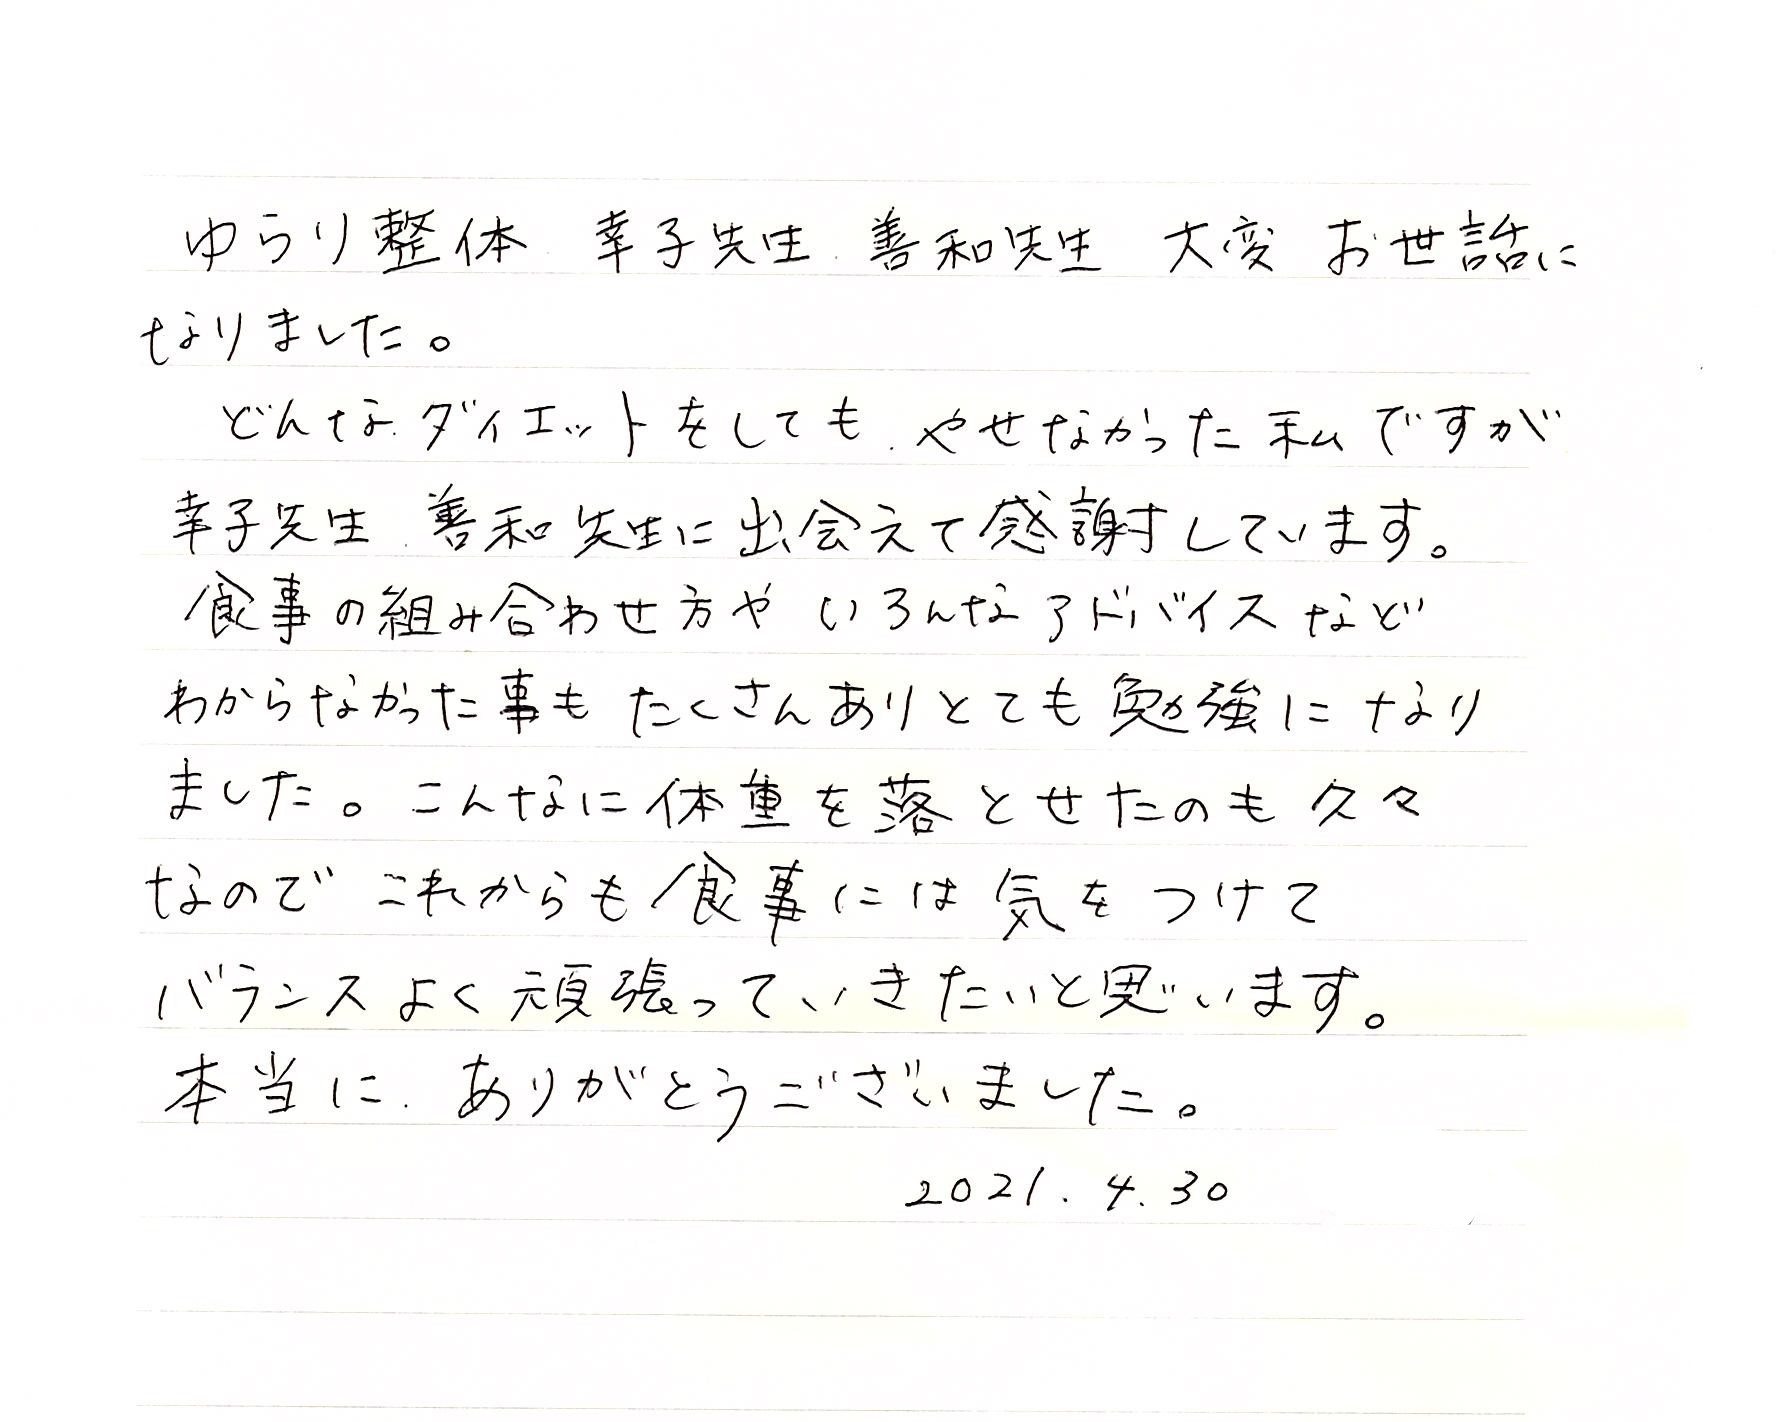 ゆらり整体 幸子先生 善和先生 大変 お世話に
なりました。
どんな ダイエットをしても やせなかった 私ですが
幸子先生 善和先生に出会えて感謝しています。
食事の組み合わせ方や いろんなアドバイスなど
わからなかった事も たくさんありとても勉強になり
ました。こんなに体重を落とせたのも久々
なので これからも食事には気をつけて
バランスよく頑張っていきたいと思います。
本当に ありがとうございました。
2021.4.30